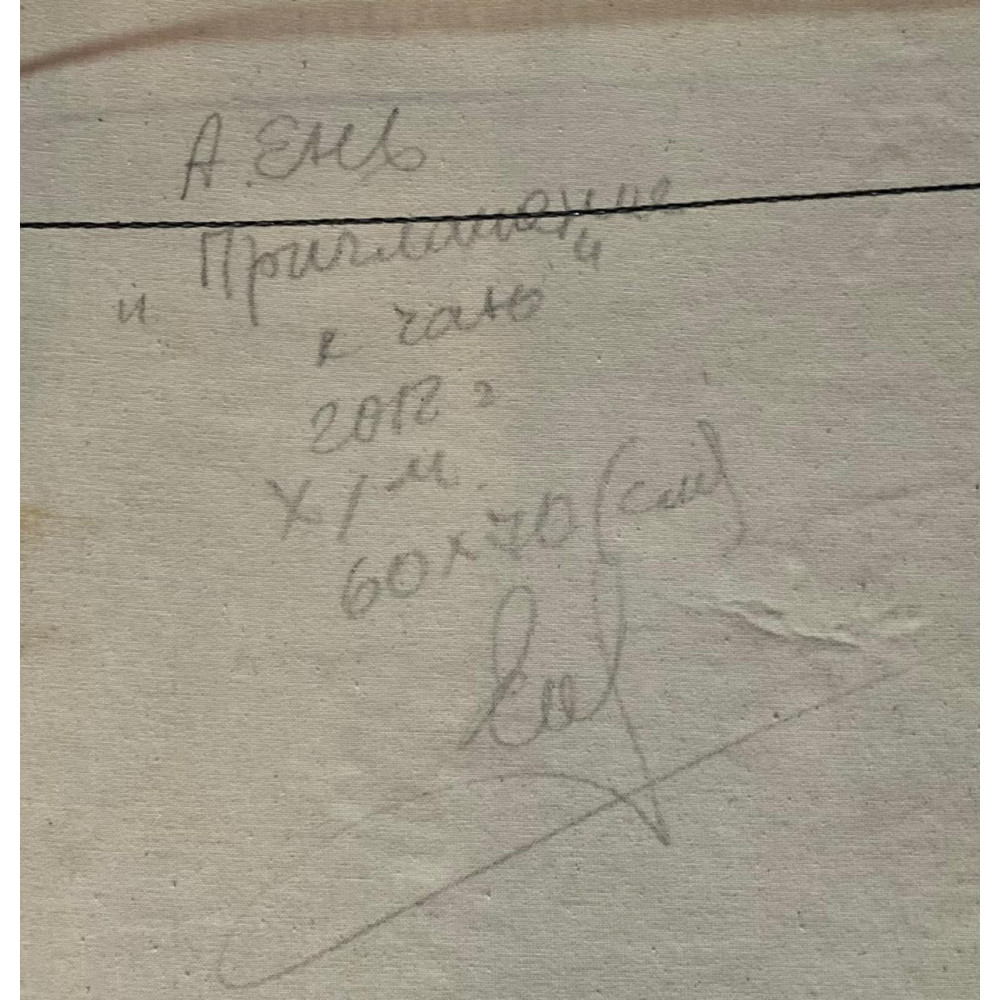 А. Ень
"Приглашение
к чаю"
2012 г
х/м.
60х70 (см)